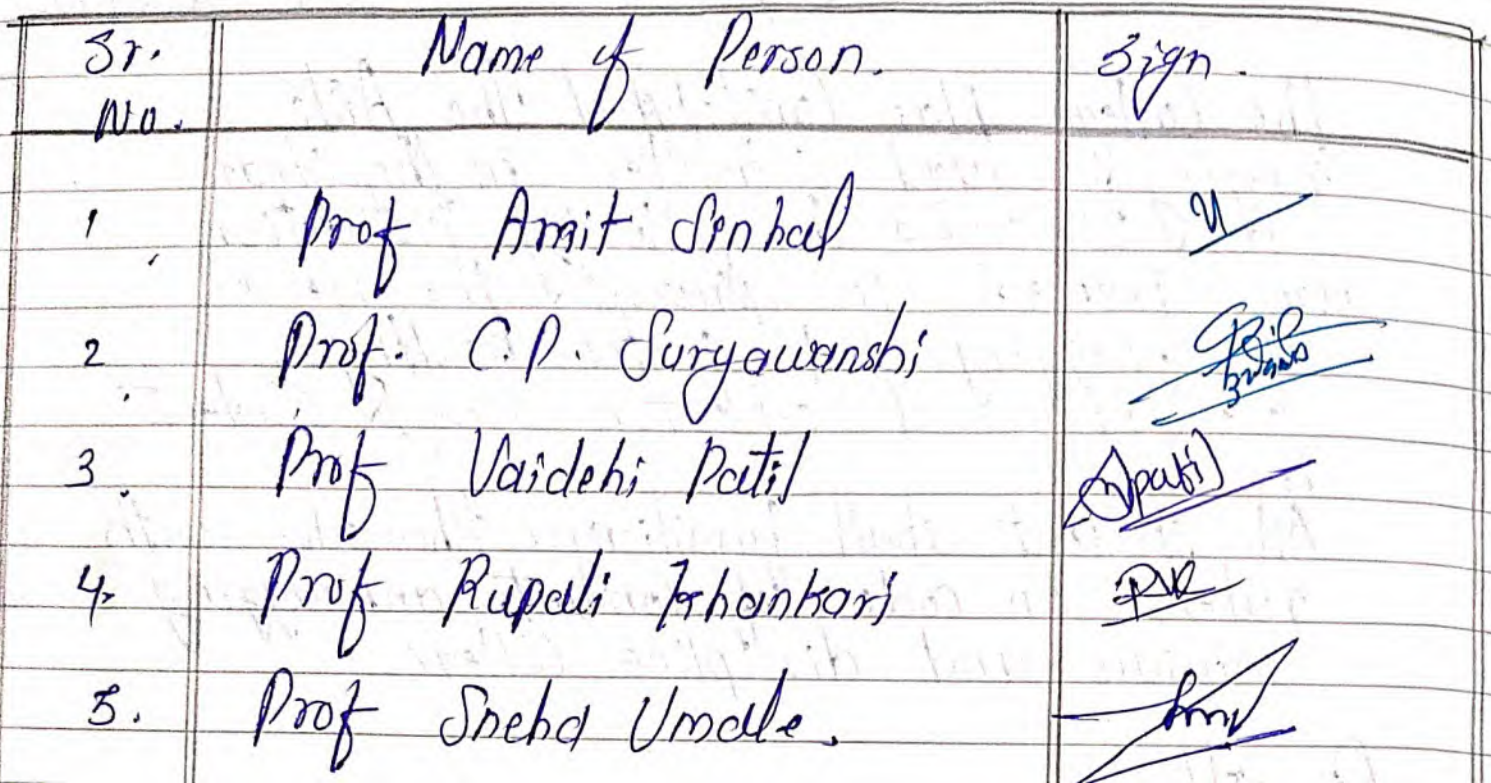 Sr. No. Name of Person. Sign.
1 Prof Amit Sinhal
2 Prof. C.P. Suryawanshi
3. Prof Vaidehi Patil Vpatil
4. Prof. Rupali Khankari
5. Prof Sneha Umale.